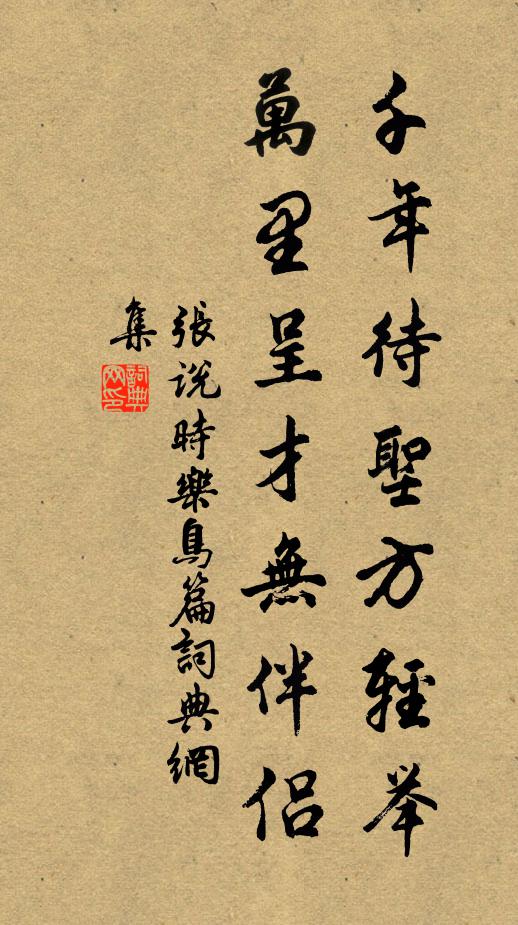 千年待聖方輕举
萬里呈才無伴侶
張說時樂鳥篇詞典網
集
詞典網印